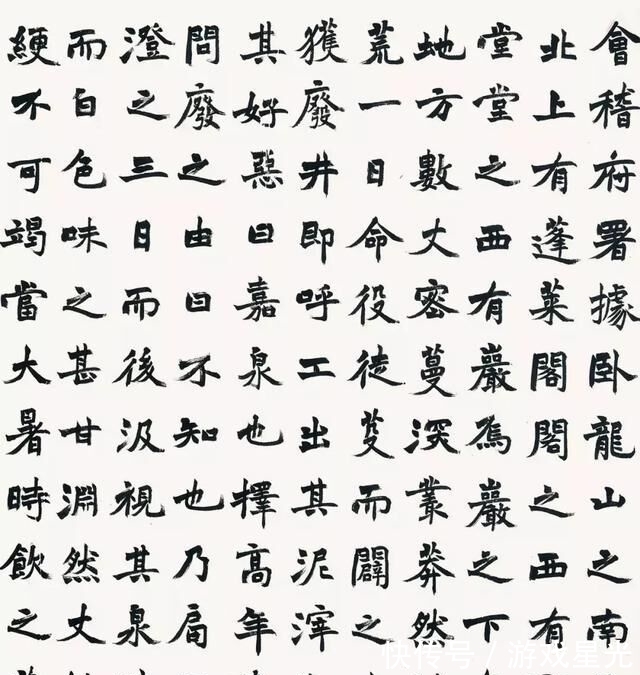 會稽府署據卧龍山之南
北上有蓬萊閣閣之西有
堂堂之西有巖焉巖之下
地方數丈密蔓深叢莽然
荒一日命役徒芟而闢之
獲廢井即呼工出其泥滓
其好惡曰嘉泉也擇高年
問廢之由曰不知也乃扃
澄之三日而後汲視其泉
而白色味之甚甘淵然丈
綆不可竭當大暑時飲之
快传号 / 游戏星光